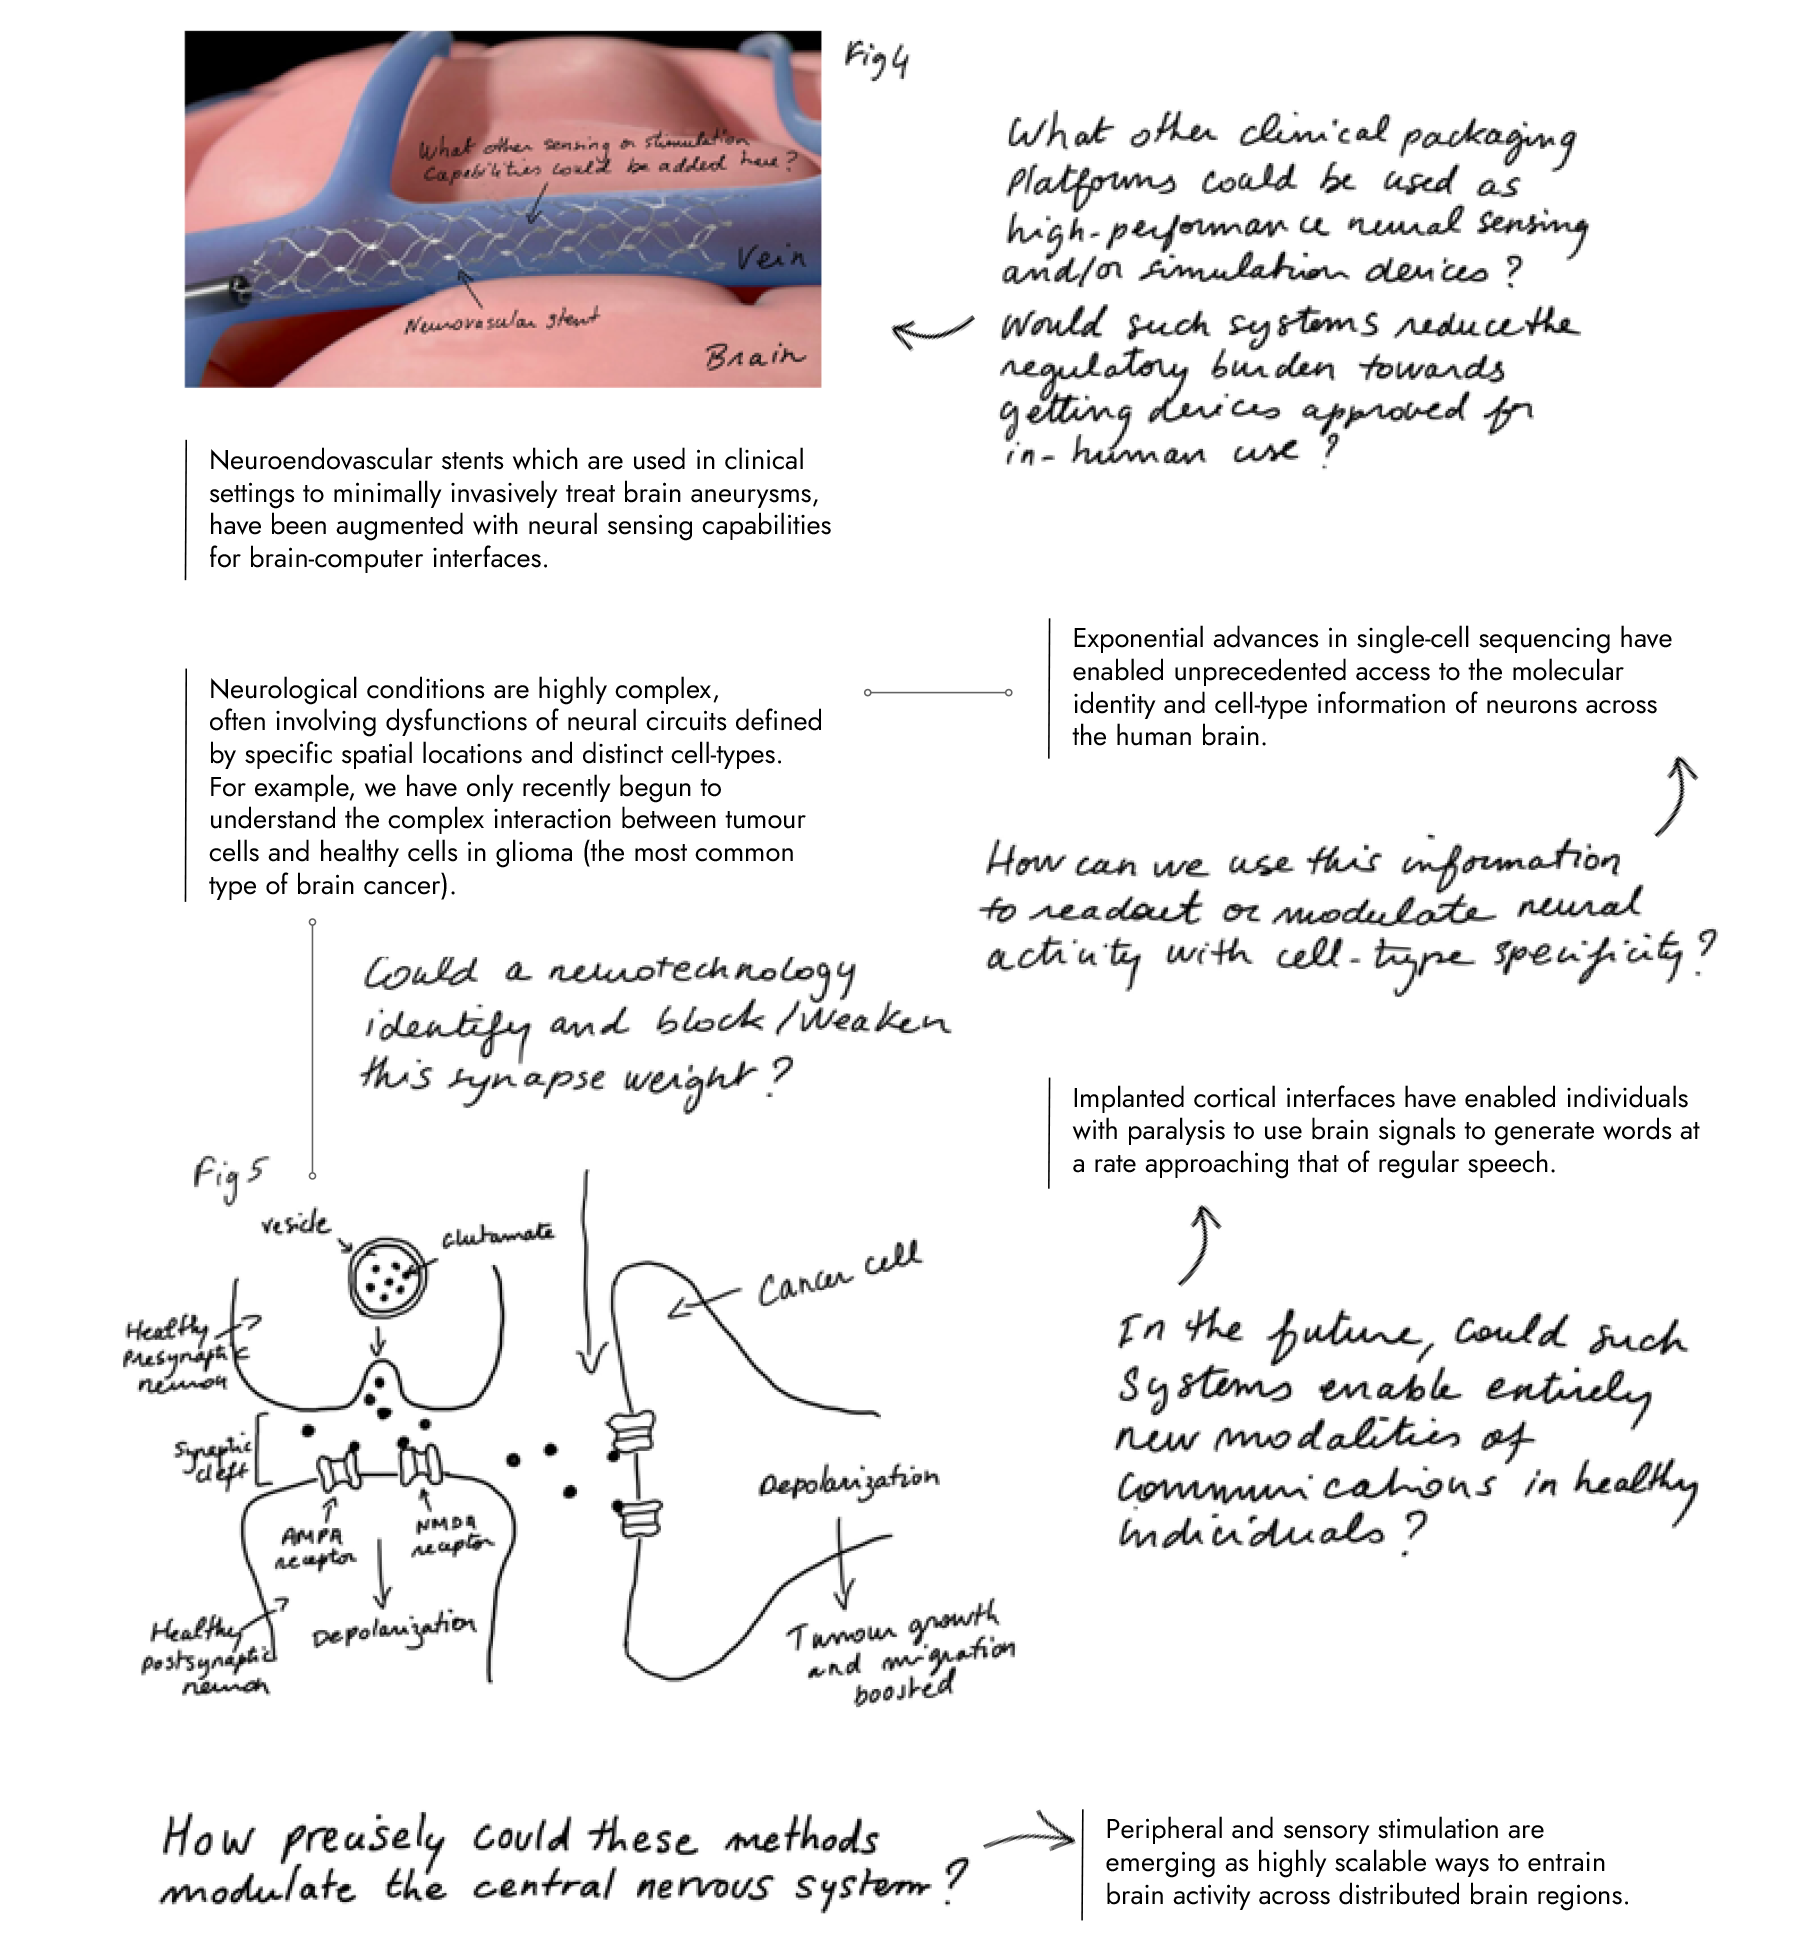 Fig 4
What other sensing or stimulation
capabilities could be added here?
Vein
Neurovascular stent
Brain
What other clinical packaging
platforms could be used as
high-performance neural sensing
and/or simulation devices?
Would such systems reduce the
regulatory burden towards
getting devices approved for
in-human use?
Neuroendovascular stents which are used in clinical
settings to minimally invasively treat brain aneurysms,
have been augmented with neural sensing capabilities
for brain-computer interfaces.
Exponential advances in single-cell sequencing have
enabled unprecedented access to the molecular
identity and cell-type information of neurons across
the human brain.
Neurological conditions are highly complex,
often involving dysfunctions of neural circuits defined
by specific spatial locations and distinct cell-types.
For example, we have only recently begun to
understand the complex interaction between tumour
cells and healthy cells in glioma (the most common
type of brain cancer).
How can we use this information
to readout or modulate neural
activity with cell-type specificity?
Could a neurotechnology
identify and block/weaken
this synapse weight?
Implanted cortical interfaces have enabled individuals
with paralysis to use brain signals to generate words at
a rate approaching that of regular speech.
Fig 5
vesicle
Glutamate
Cancer cell
Healthy
presynaptic
neuron
Synaptic
cleft
AMPA
receptor
NMDA
receptor
Depolarization
Healthy
postsynaptic
neuron
Depolarization
Tumour growth
and migration
boosted
In the future, could such
systems enable entirely
new modalities of
communications in healthy
individuals?
How precisely could these methods
modulate the central nervous system?
Peripheral and sensory stimulation are
emerging as highly scalable ways to entrain
brain activity across distributed brain regions.